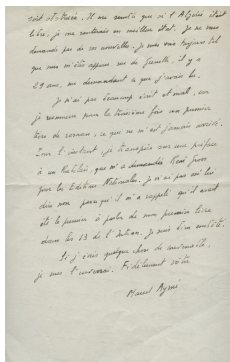 soit obstruée. Il me semble que si l'Algérie était
libre, je me sentirais en meilleur état. Je ne vous
demande pas de vos nouvelles. Je vous vois toujours tel
que vous m'êtes apparu rue de Grenelle, il y a
29 ans, me demandant ce que j'avais lu.
Je n'ai pas beaucoup écrit et mal, car
je recommence pour la troisième fois un premier
tiers de roman, ce qui ne m'est jamais arrivé.
Pour l'instant, je transpire sur une préface
à un que m'a demandée René
pour les Editions Nationales. Je n'ai pas osé lui
dire non parce qu'il m'a rappelé qu'il avait
été le premier à parler de mon premier livre
dans les 15 de l'Intran. Je suis bien embêté.
Si j'écris quelque chose de convenable,
je vous l'enverrai. Fidèlement vôtre
Marcel Aymé